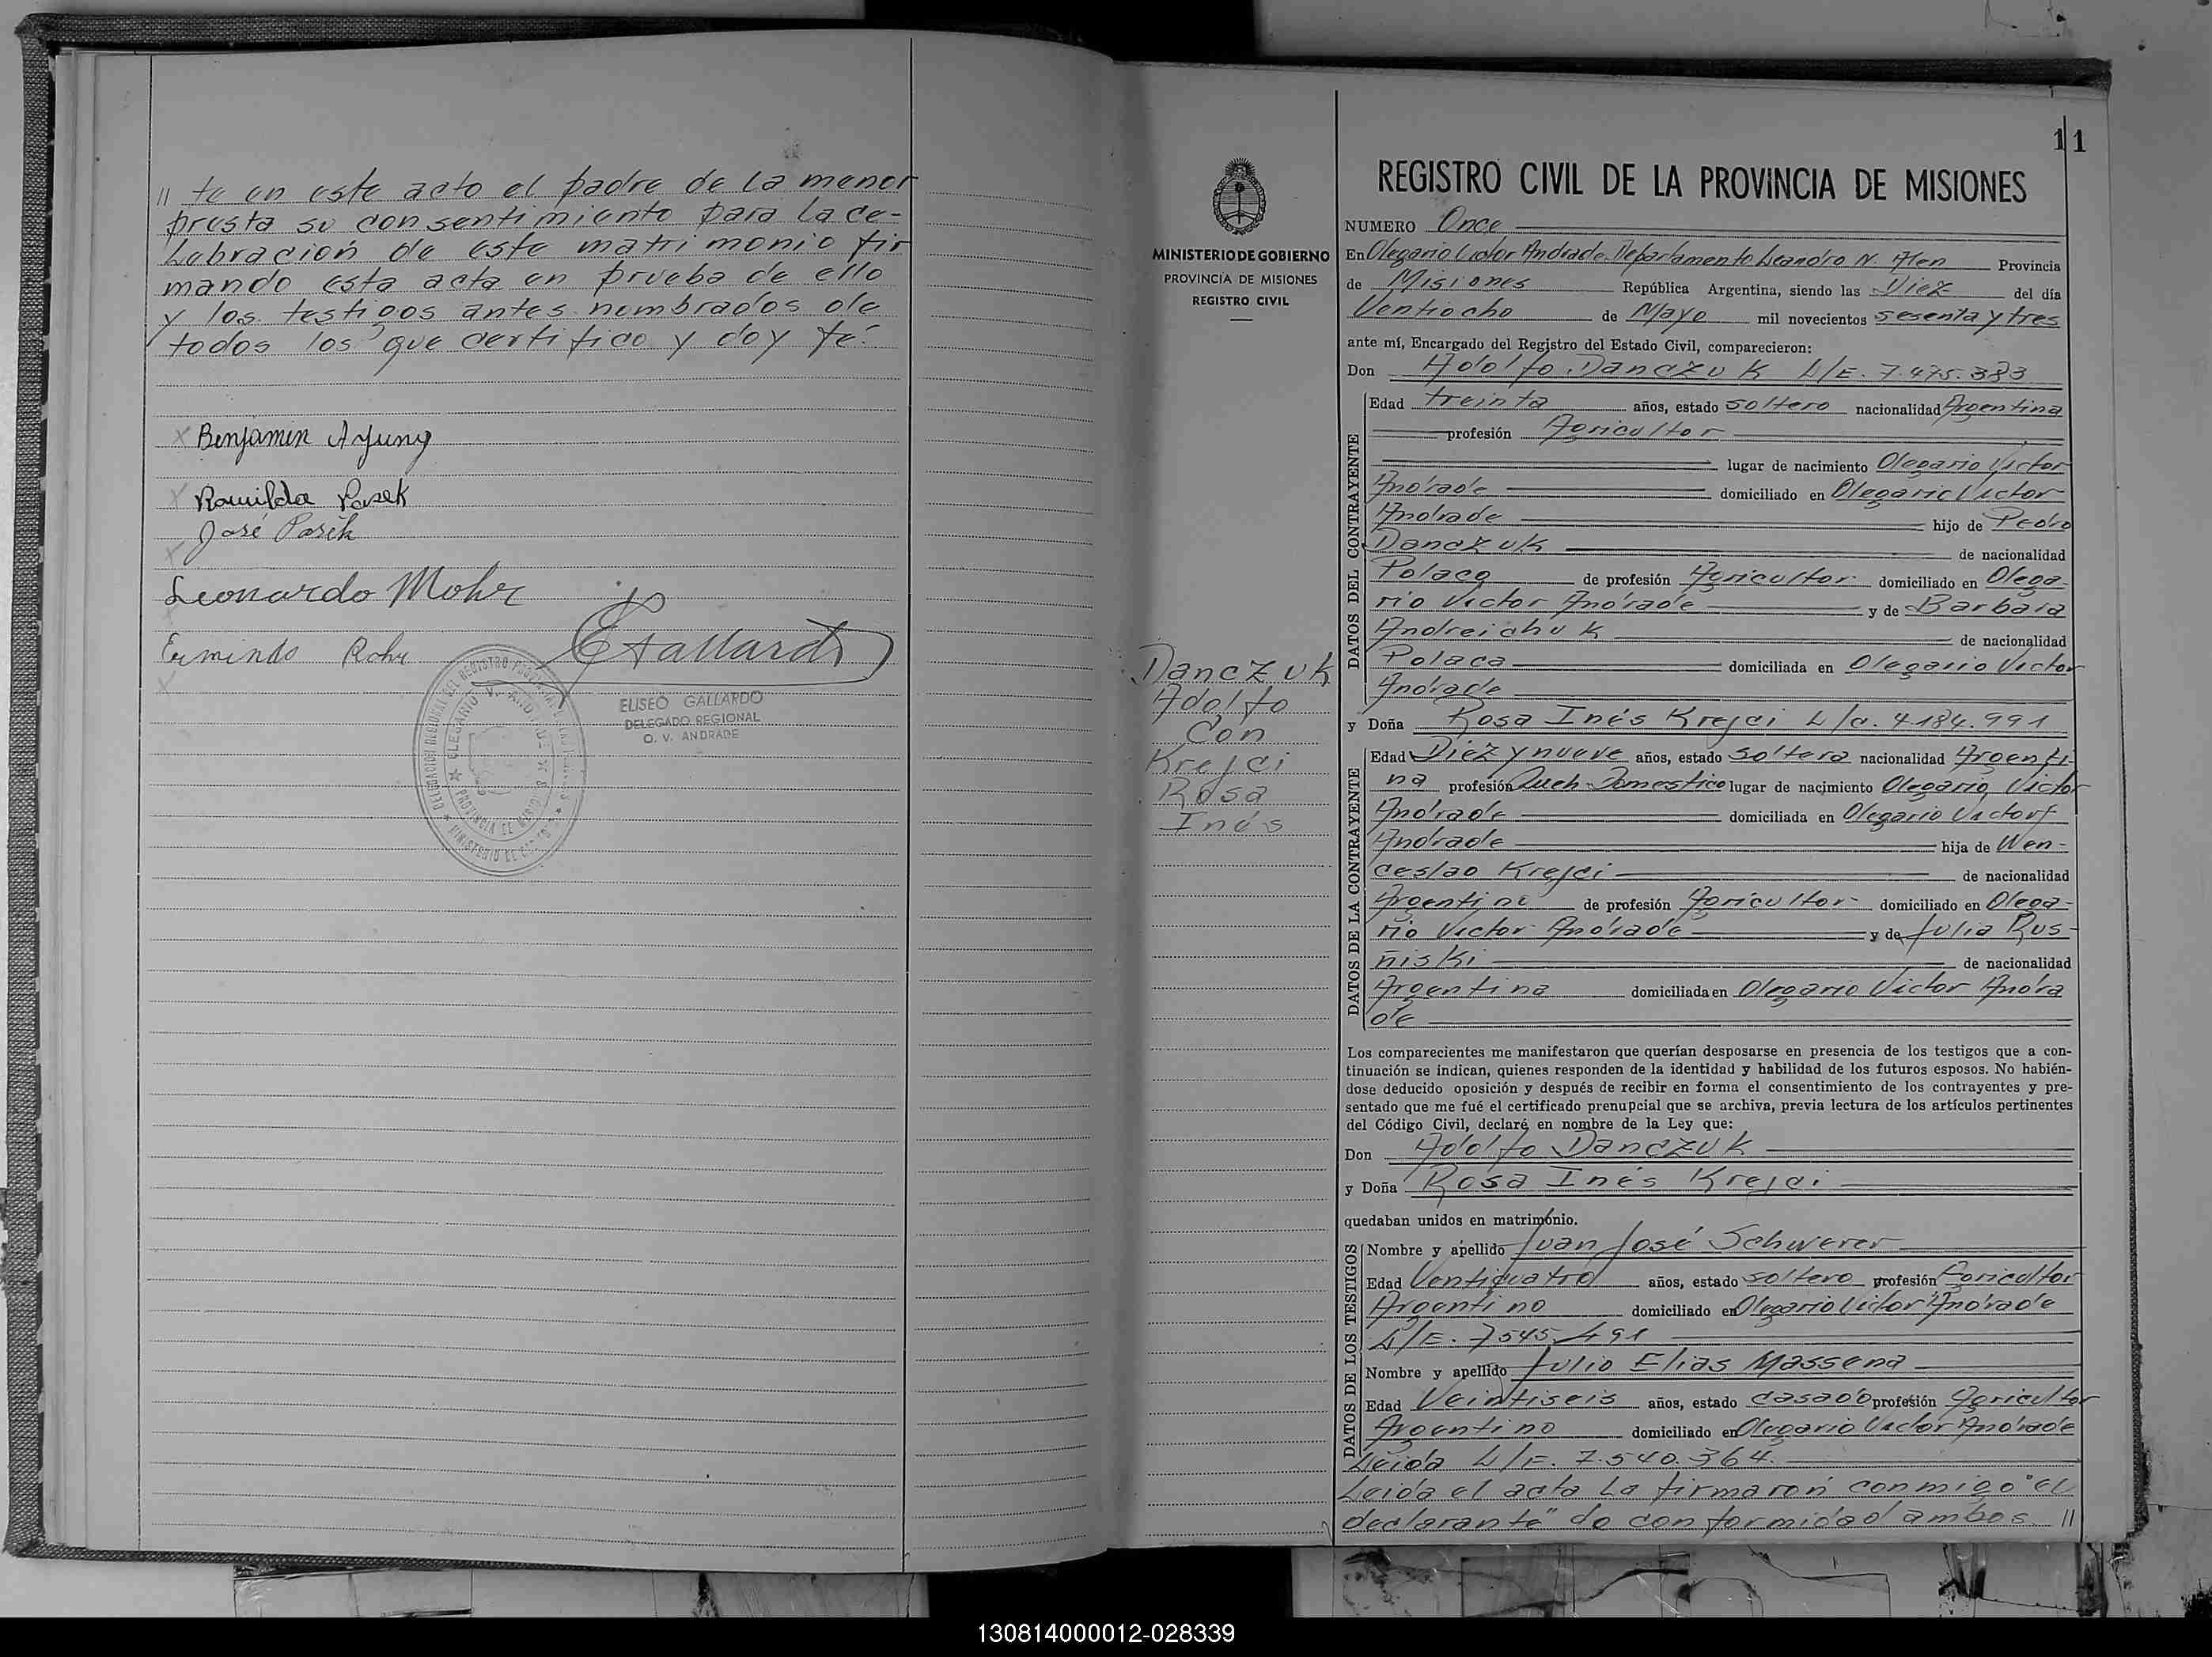 " te en este acto el padre de la menor
presta su consentimiento para la ce-
lebración de este matrimonio fir
mando esta acta en prueba de ello
y los testigos antes nombrados de
todos los que certifico y doy fé.
Benjamin Ayung
Romilda Pasek
José Pasek
Leonardo Mohr
Ermindo Rohr
EGallardo
ELISEO GALLARDO
DELEGADO REGIONAL
O. V. ANDRADE
MINISTERIO DE GOBIERNO
PROVINCIA DE MISIONES
REGISTRO CIVIL
Danczuk
Adolfo
Con
Krejci
Rosa
Inés
11
REGISTRO CIVIL DE LA PROVINCIA DE MISIONES
NUMERO Once
En Olegario Victor Andrade Departamento Leandro N. Alen Provincia
de Misiones República Argentina, siendo las Diez del día
Ventiocho de Mayo mil novecientos sesenta y tres
ante mí, Encargado del Registro del Estado Civil, comparecieron:
Don Adolfo Danczuk L/E. 7.475.383
DATOS DEL CONTRAYENTE
Edad treinta años, estado soltero nacionalidad Argentina
profesión Agricultor
lugar de nacimiento Olegario Victor
Andrade domiciliado en Olegario Victor
Andrade hijo de Pedro
Danczuk de nacionalidad
Polaco de profesión Agricultor domiciliado en Olega-
rio Victor Andrade y de Barbara
Andreichuk de nacionalidad
Polaca domiciliada en Olegario Victor
Andrade
y Doña Rosa Inés Krejci L/c. 4.184.991
DATOS DE LA CONTRAYENTE
Edad Diez y nueve años, estado soltera nacionalidad Argenti-
na profesión Queh-Domestico lugar de nacimiento Olegario Victor
Andrade domiciliada en Olegario Victor
Andrade hija de Wen-
ceslao Krejci de nacionalidad
Argentino de profesión Agricultor domiciliado en Olega-
rio Victor Andrade y de Julia Rus-
ñiski de nacionalidad
Argentina domiciliada en Olegario Victor Andra
de
Los comparecientes me manifestaron que querían desposarse en presencia de los testigos que a con-
tinuación se indican, quienes responden de la identidad y habilidad de los futuros esposos. No habién-
dose deducido oposición y después de recibir en forma el consentimiento de los contrayentes y pre-
sentado que me fué el certificado prenupcial que se archiva, previa lectura de los artículos pertinentes
del Código Civil, declaré en nombre de la Ley que:
Don Adolfo Danczuk
y Doña Rosa Inés Krejci
quedaban unidos en matrimonio.
DATOS DE LOS TESTIGOS
Nombre y apellido Juan José Schwerer
Edad Venticuatro años, estado soltero profesión Agricultor
Argentino domiciliado en Olegario Victor Andrade
L/E. 7.545.491
Nombre y apellido Julio Elias Massena
Edad Veintiseis años, estado casado profesión Agricultor
Argentino domiciliado en Olegario Victor Andrade
Leida L/E. 7.540.364.
Leida el acta la firmaron conmigo "el
declarante" de conformidad ambos "
130814000012-028339